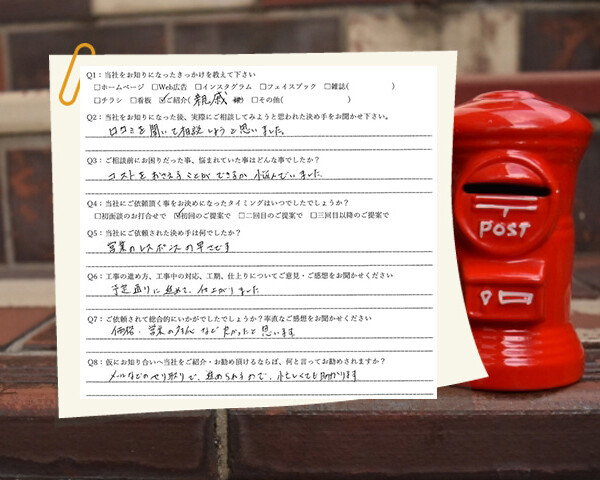 Q1：当社をお知りになったきっかけを教えて下さい
□ホームページ □Web広告 □インスタグラム □フェイスブック □雑誌( )
□チラシ □看板 ☑ご紹介( 親戚 様) □その他( )
Q2：当社をお知りになった後、実際にご相談してみようと思われた決め手をお聞かせ下さい。
口コミを聞いて相談しようと思いました。
Q3：ご相談前にお困りだった事、悩まれていた事はどんな事でしたか？
コストをおさえることができるか悩んでいました
Q4：当社にご依頼頂く事をお決めになったタイミングはいつでしたでしょうか？
□初面談のお打合せで ☑初回のご提案で □二回目のご提案で □三回目以降のご提案で
Q5：当社にご依頼された決め手は何でしたか？
営業のレスポンスの早さです
Q6：工事の進め方、工事中の対応、工期、仕上りについてご意見・ご感想をお聞かせください
予定通りに進めて、仕上がりました
Q7：ご依頼されて総合的にいかがでしたでしょうか？率直なご感想をお聞かせください
価格・営業の対応など良かったと思います
Q8：仮にお知り合いへ当社をご紹介・お勧め頂けるならば、何と言ってお勧めされますか？
メールなどのやり取りで、進められるので、忙しくても助かります
POST